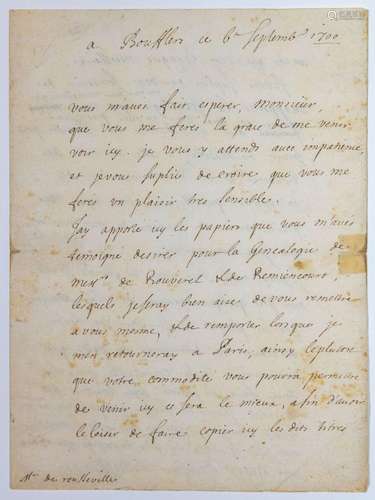 a Boufflers ce 6e Septemb 1700
vous mauez fait esperer, Monsieur,
que vous me feres la grace de me venir
voir icy. je vous y attends auec impatience,
et je vous suplie de croire que vous me
feres un plaisir tres sensible.
Jay apporté icy les papiers que vous m'aués
temoigné desirer pour la Genealogie de
mess.rs de Rouverel & de Remiencourt,
lesquels je seray bien aise de vous remettre
a vous mesme, & de remporter lorsque je
men retourneray a Paris, ainsy le plustost
que votre commodité vous pourra permettre
de venir icy ce sera le mieux, afin d'auoir
le loisir de faire copier icy les dits titres
Mr. de rousseville